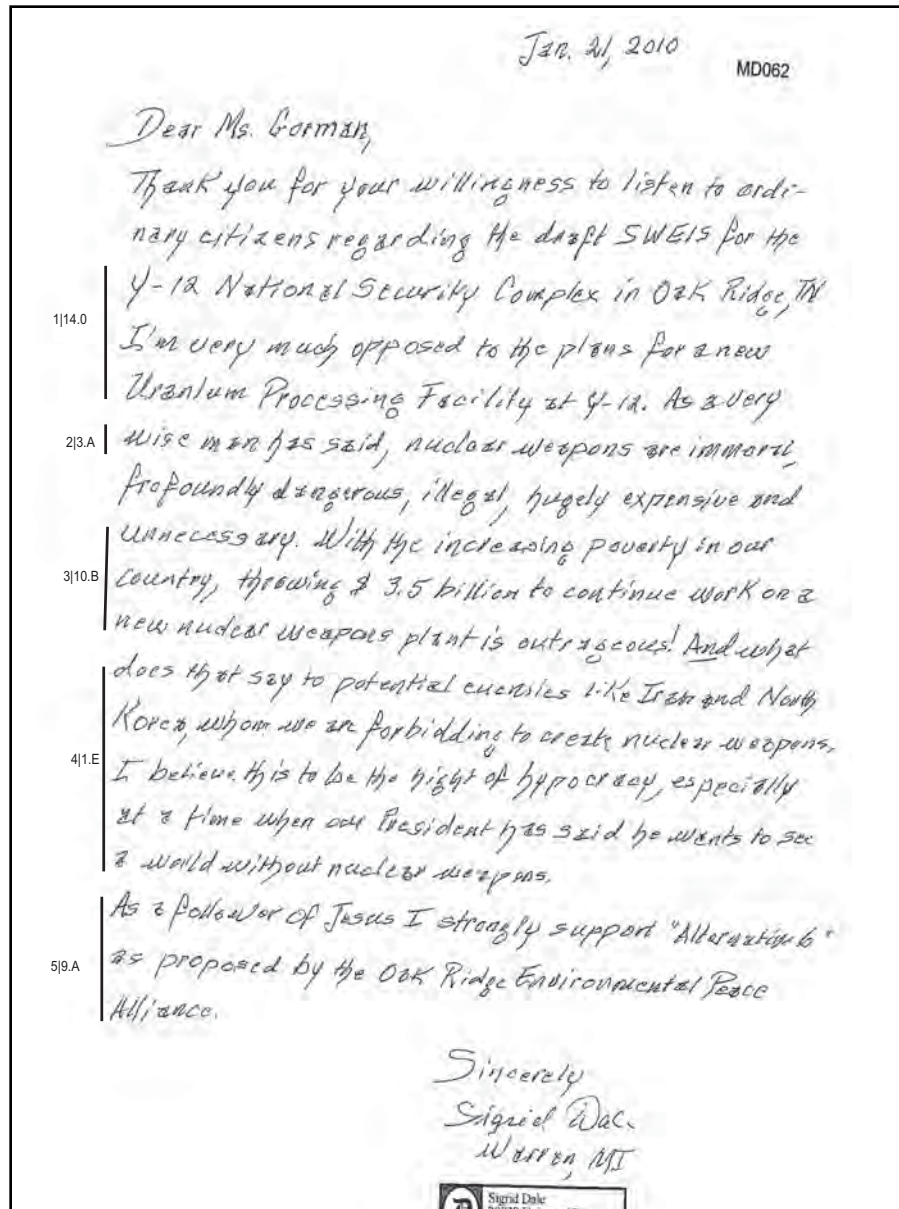 Jan. 21, 2010
MD062
Dear Ms. Gorman,
Thank you for your willingness to listen to ordi-
nary citizens regarding the draft SWEIS for the
Y-12 National Security Complex in Oak Ridge, TN
1|14.0
I'm very much opposed to the plans for a new
Uranium Processing Facility at Y-12. As a very
2|3.A
wise man has said, nuclear weapons are immoral,
profoundly dangerous, illegal, hugely expensive and
unnecessary. With the increasing poverty in our
3|10.B
country, throwing $ 3.5 billion to continue work on a
new nuclear weapons plant is outrageous! And what
does that say to potential enemies like Iran and North
Korea, whom we are forbidding to create nuclear weapons.
4|1.E
I believe this to be the hight of hypocracy, especially
at a time when our President has said he wants to see
a world without nuclear weapons.
As a follower of Jesus I strongly support "Alternative 6"
5|9.A
as proposed by the Oak Ridge Environmental Peace
Alliance.
Sincerely
Sigrid
Warren, MI
Sigrid Dale